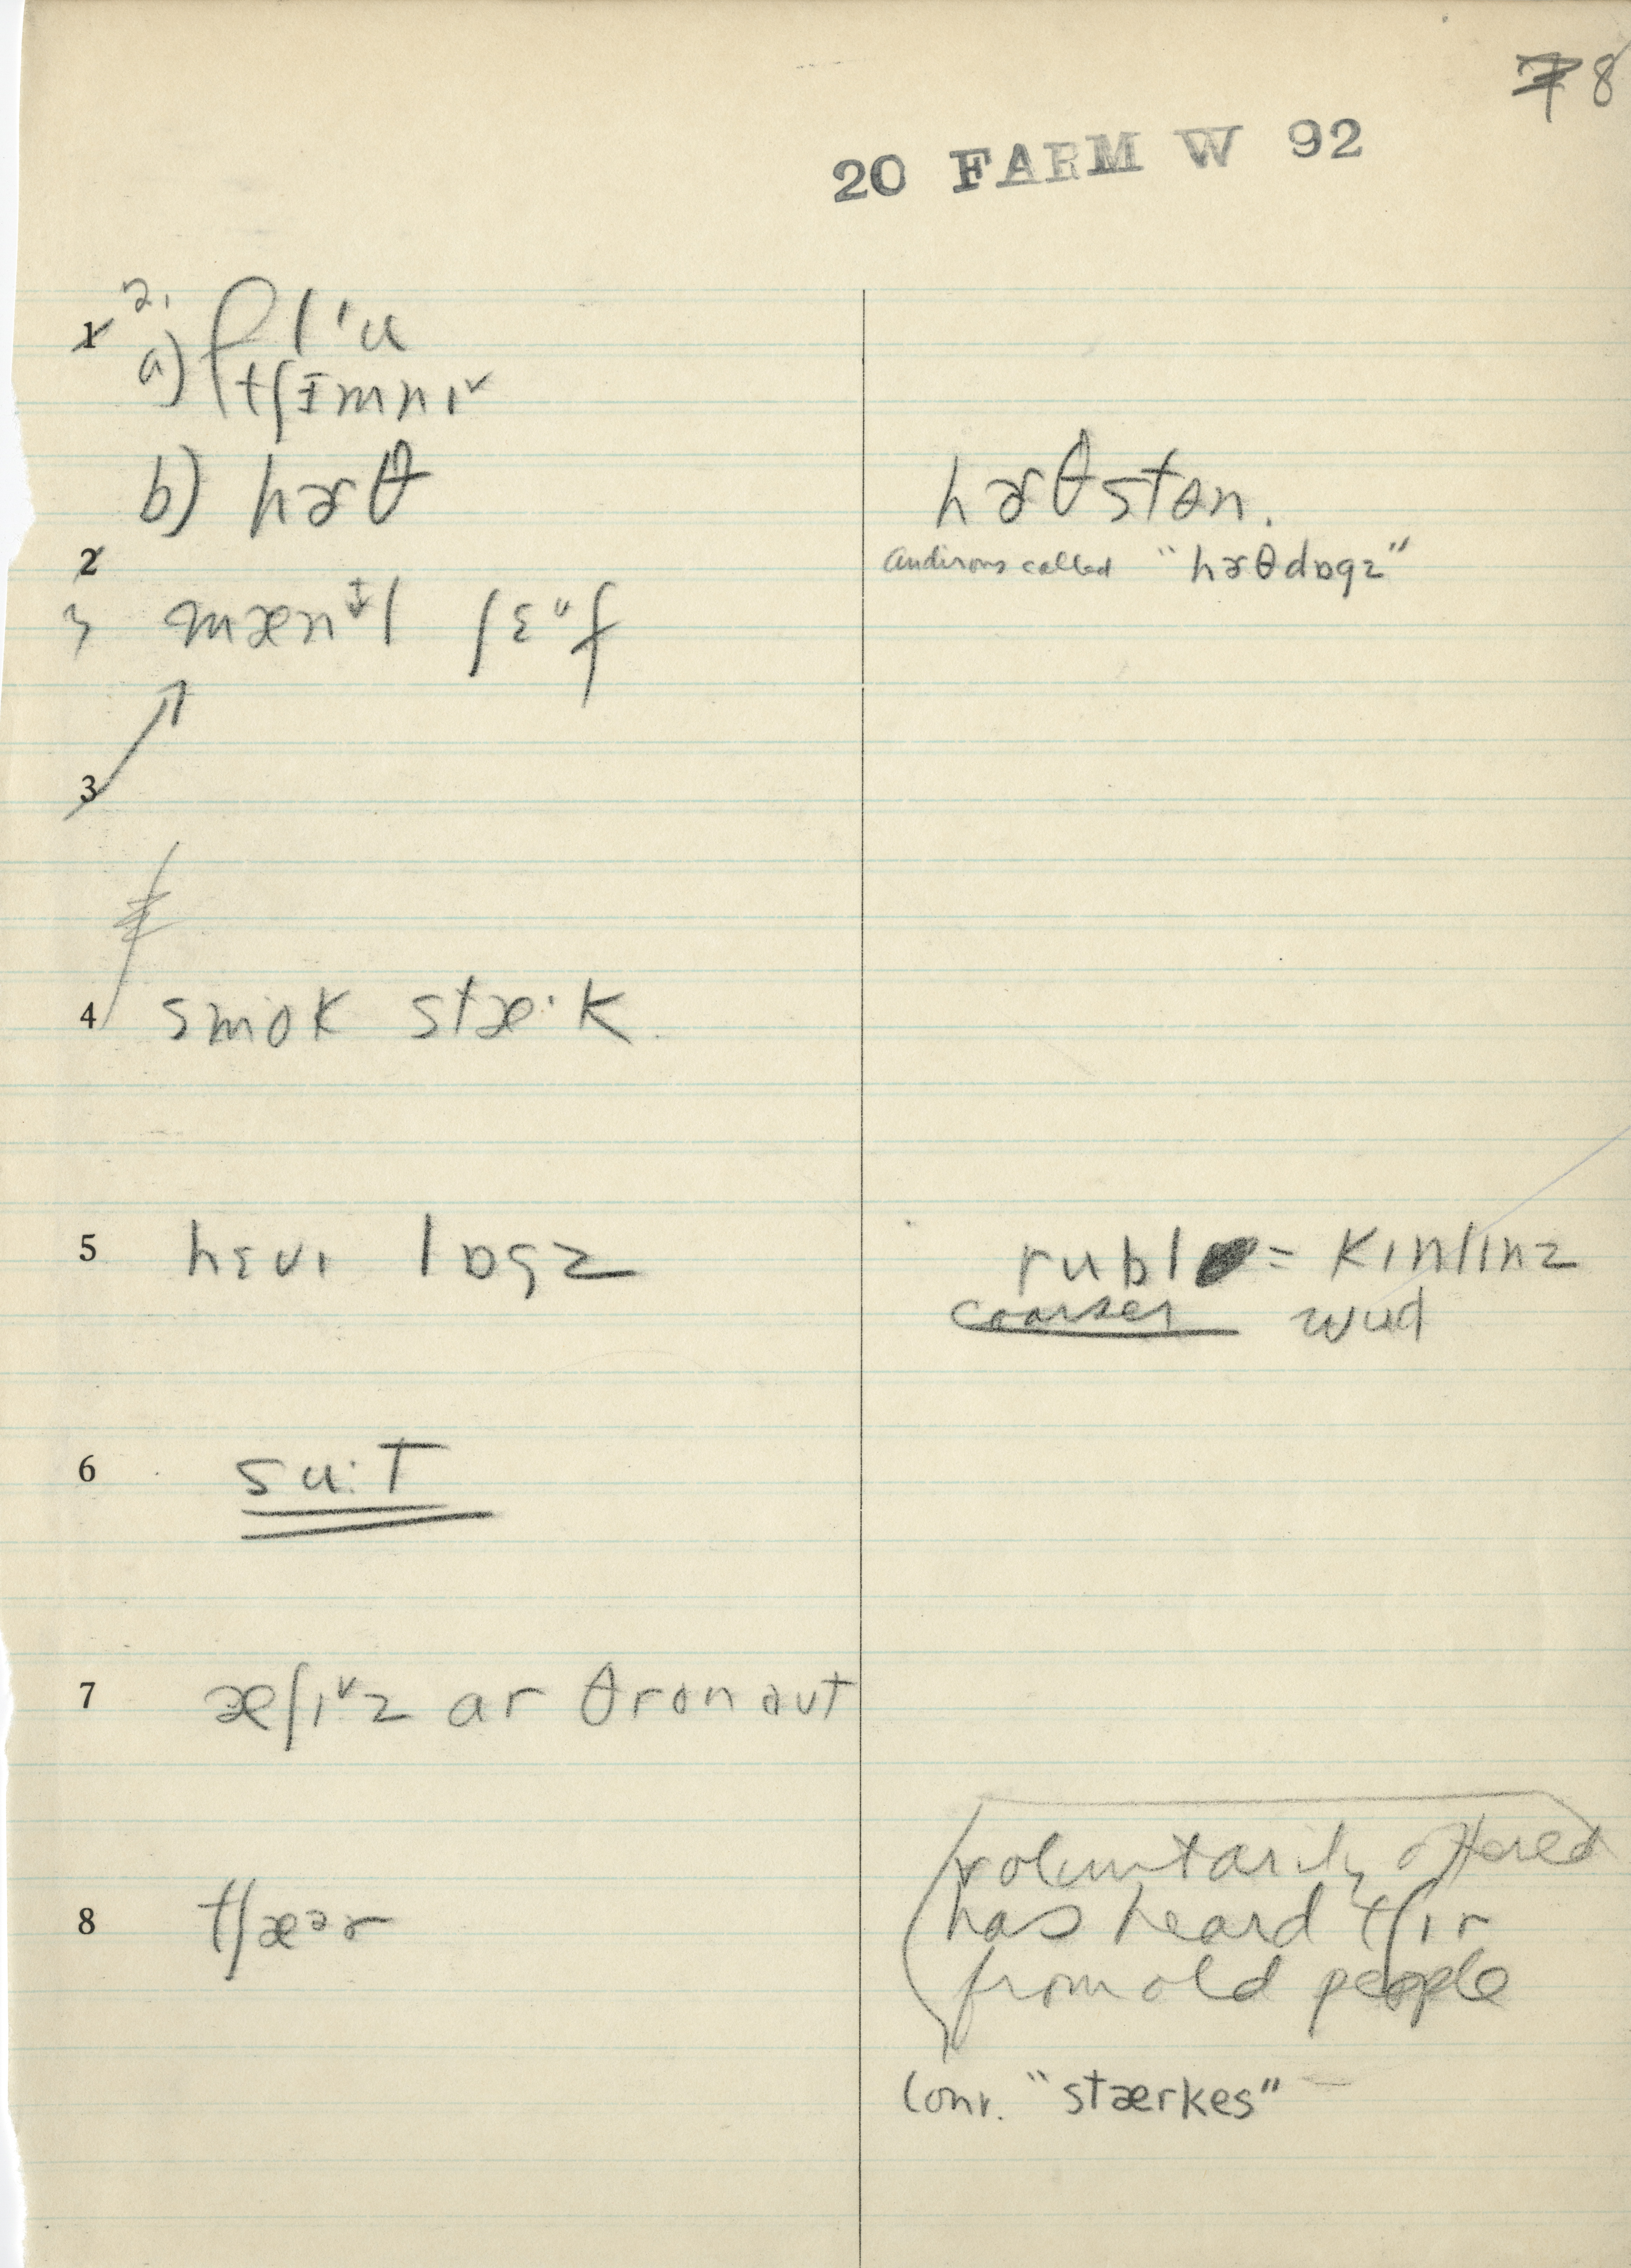 8
20 FARM W 92
1 2.
a) flˈu
tʃɪmnɪ˅
b) hɚθ
hɚθ stɵn.
2
andirons called "hɚθdɒgz"
3 mænɨ̞l ʃɛᵘf
3
4 smok stæ·k.
5 hɛvɪ lɒgz
rubl = kɪnlɪnz
coarser wud
6 su:T
7 æʃɪ˅z ar θronaut
voluntarily offered
8 tʃæᵊɚ
has heard tʃɪr
from old people
Conv. "stærkes"